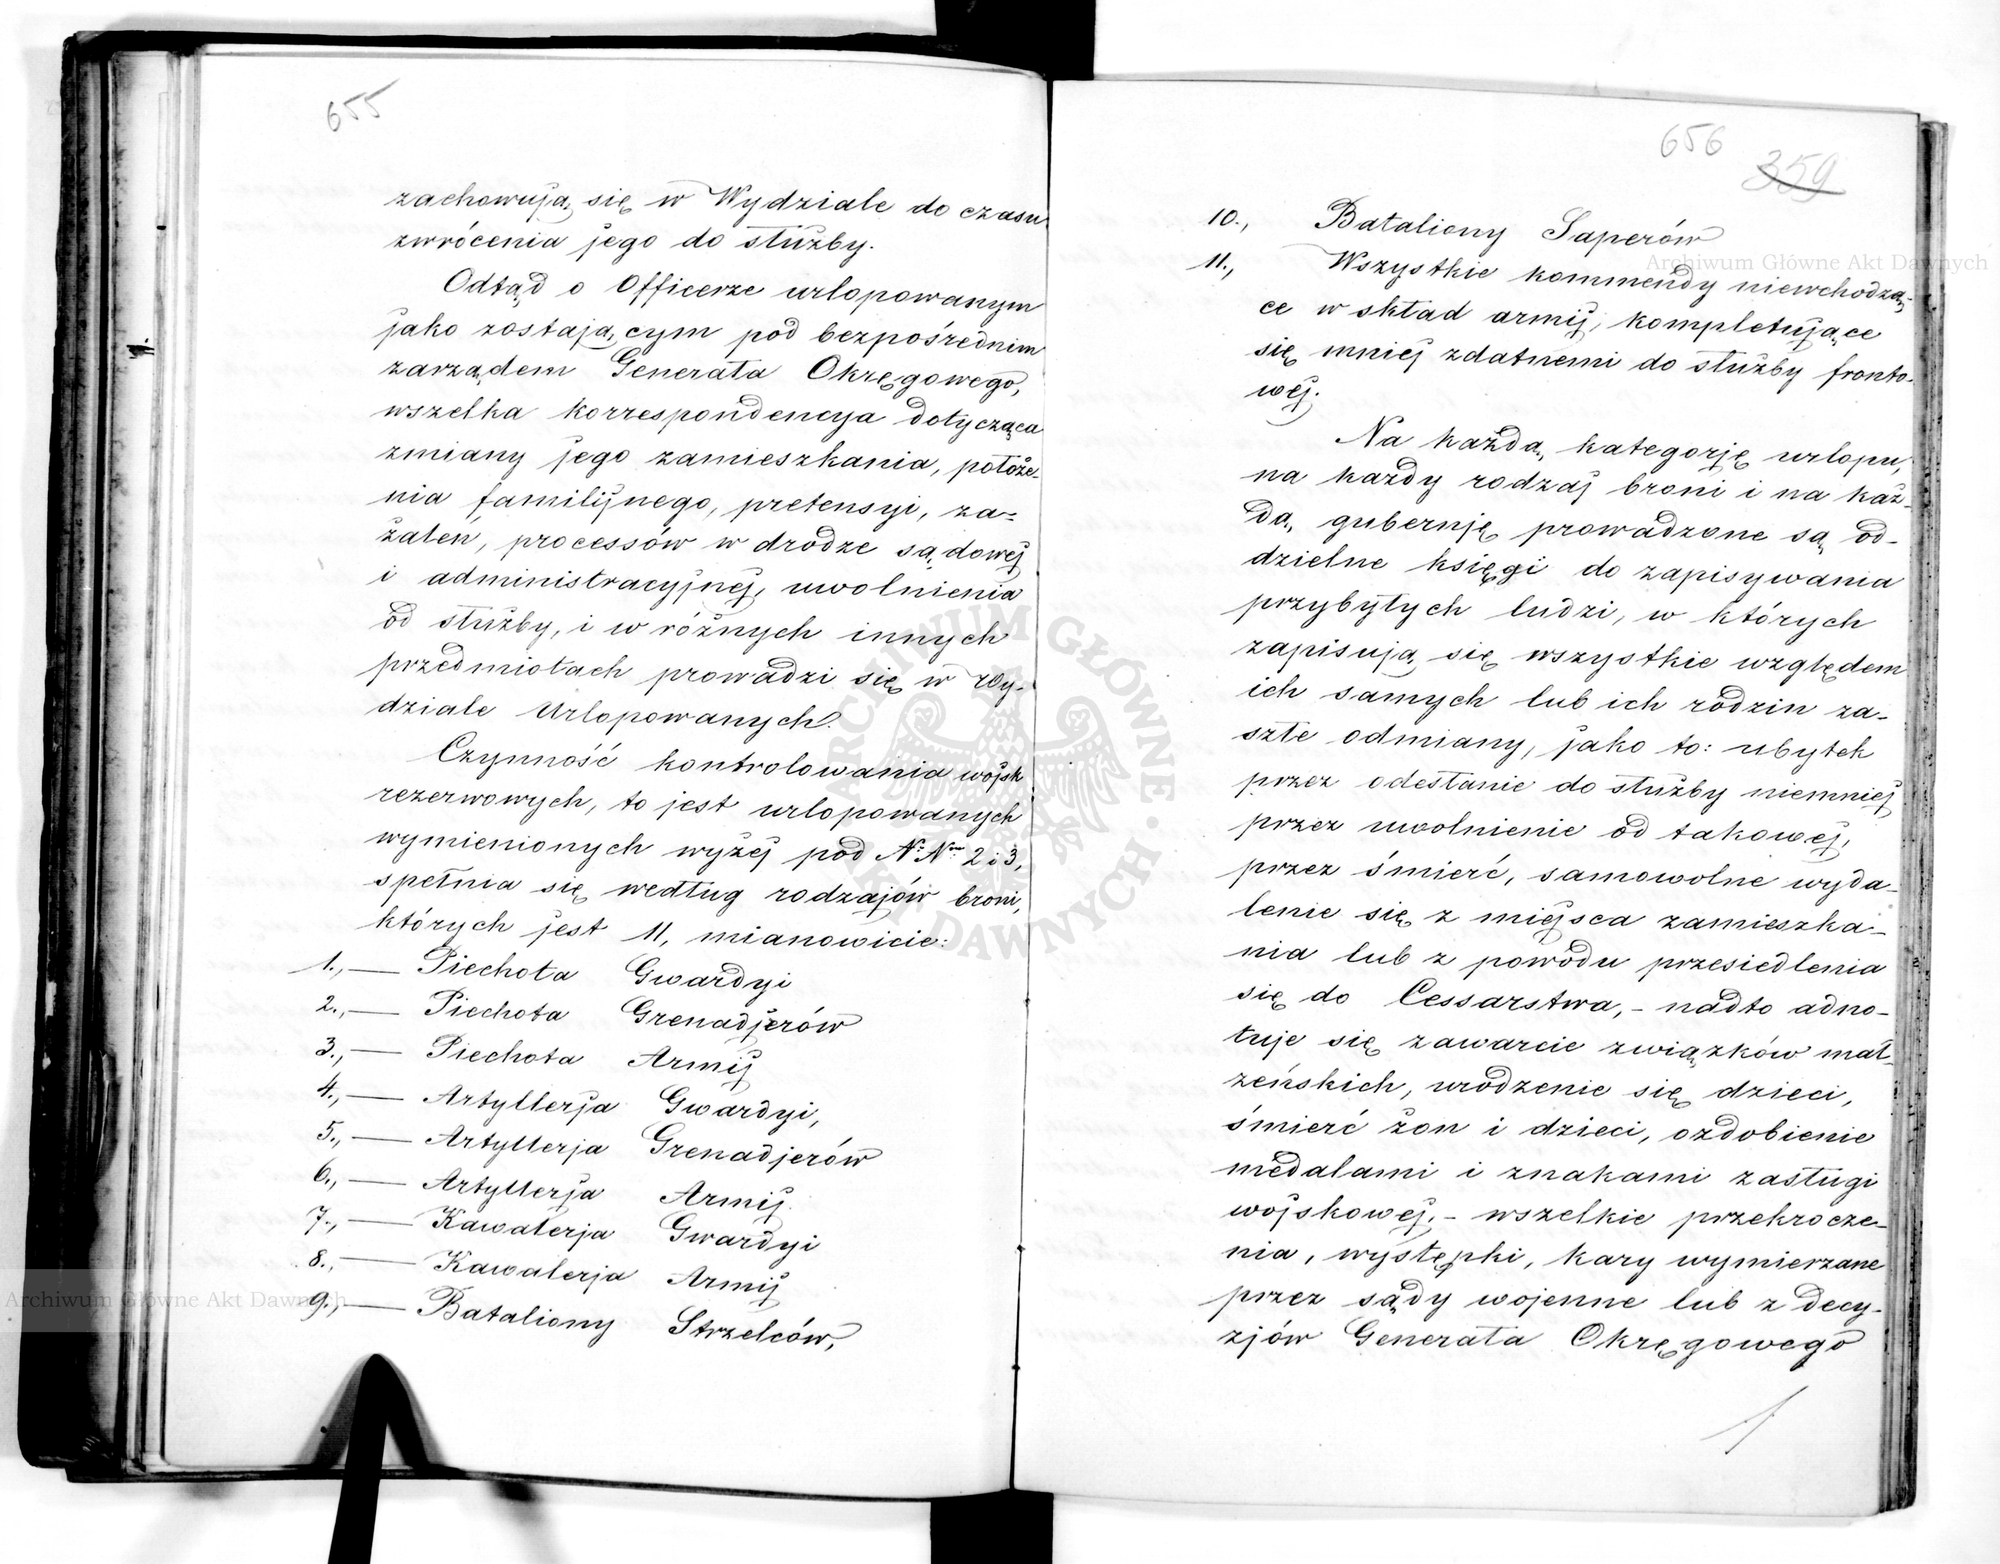 655
zachowują się w Wydziale do czasu
zwrócenia jego do służby.
Odtąd o Officerze urlopowanym
jako zostającym pod bezpośrednim
zarządem Generała Okręgowego,
wszelka korrespondencya dotycząca
zmiany jego zamieszkania, położe-
nia familijnego, pretensyi, za-
żaleń, processów w drodze sądowej
i administracyjnej, uwolnienia
od służby, i w różnych innych
przedmiotach prowadzi się w Wy-
dziale Urlopowanych.
Czynność kontrolowania wojsk
rezerwowych, to jest urlopowanych
wymienionych wyżej pod N. Nm 2 i 3,
spełnia się według rodzajów broni,
których jest 11, mianowicie:
1., — Piechota Gwardyi
2., — Piechota Grenadjerów
3., — Piechota Armij
4., — Artyllerja Gwardyi,
5., — Artyllerja Grenadjerów
6., — Artyllerja Armij.
7., — Kawalerja Gwardyi
8., — Kawalerja Armij
9., — Bataliony Strzelców,
656
359
10., Bataliony Saperów
11., Wszystkie kommendy niewchodzą-
ce w skład armij, kompletujące
się mniej zdatnemi do służby fronto-
wej.
Na każdą kategorję urlopu,
na każdy rodzaj broni i na każ-
dą gubernję prowadzone są od-
dzielne księgi do zapisywania
przybyłych ludzi, w których
zapisują się wszystkie względem
ich samych lub ich rodzin za-
szłe odmiany, jako to: ubytek
przez odesłanie do służby niemniej
przez uwolnienie od takowej,
przez śmierć, samowolne wyda-
lenie się z miejsca zamieszka-
nia lub z powodu przesiedlenia
się do Cessarstwa, - nadto adno-
tuje się zawarcie związków mał-
żeńskich, urodzenie się dzieci,
śmierć żon i dzieci, ozdobienie
medalami i znakami zasługi
wojskowej, - wszelkie przekrocze-
nia, występki, kary wymierzane
przez sądy wojenne lub z decy-
zjów Generała Okręgowego
Archiwum Główne Akt Dawnych
Archiwum Główne Akt Dawnych
ARCHIWUM GŁÓWNE · AKT DAWNYCH ·